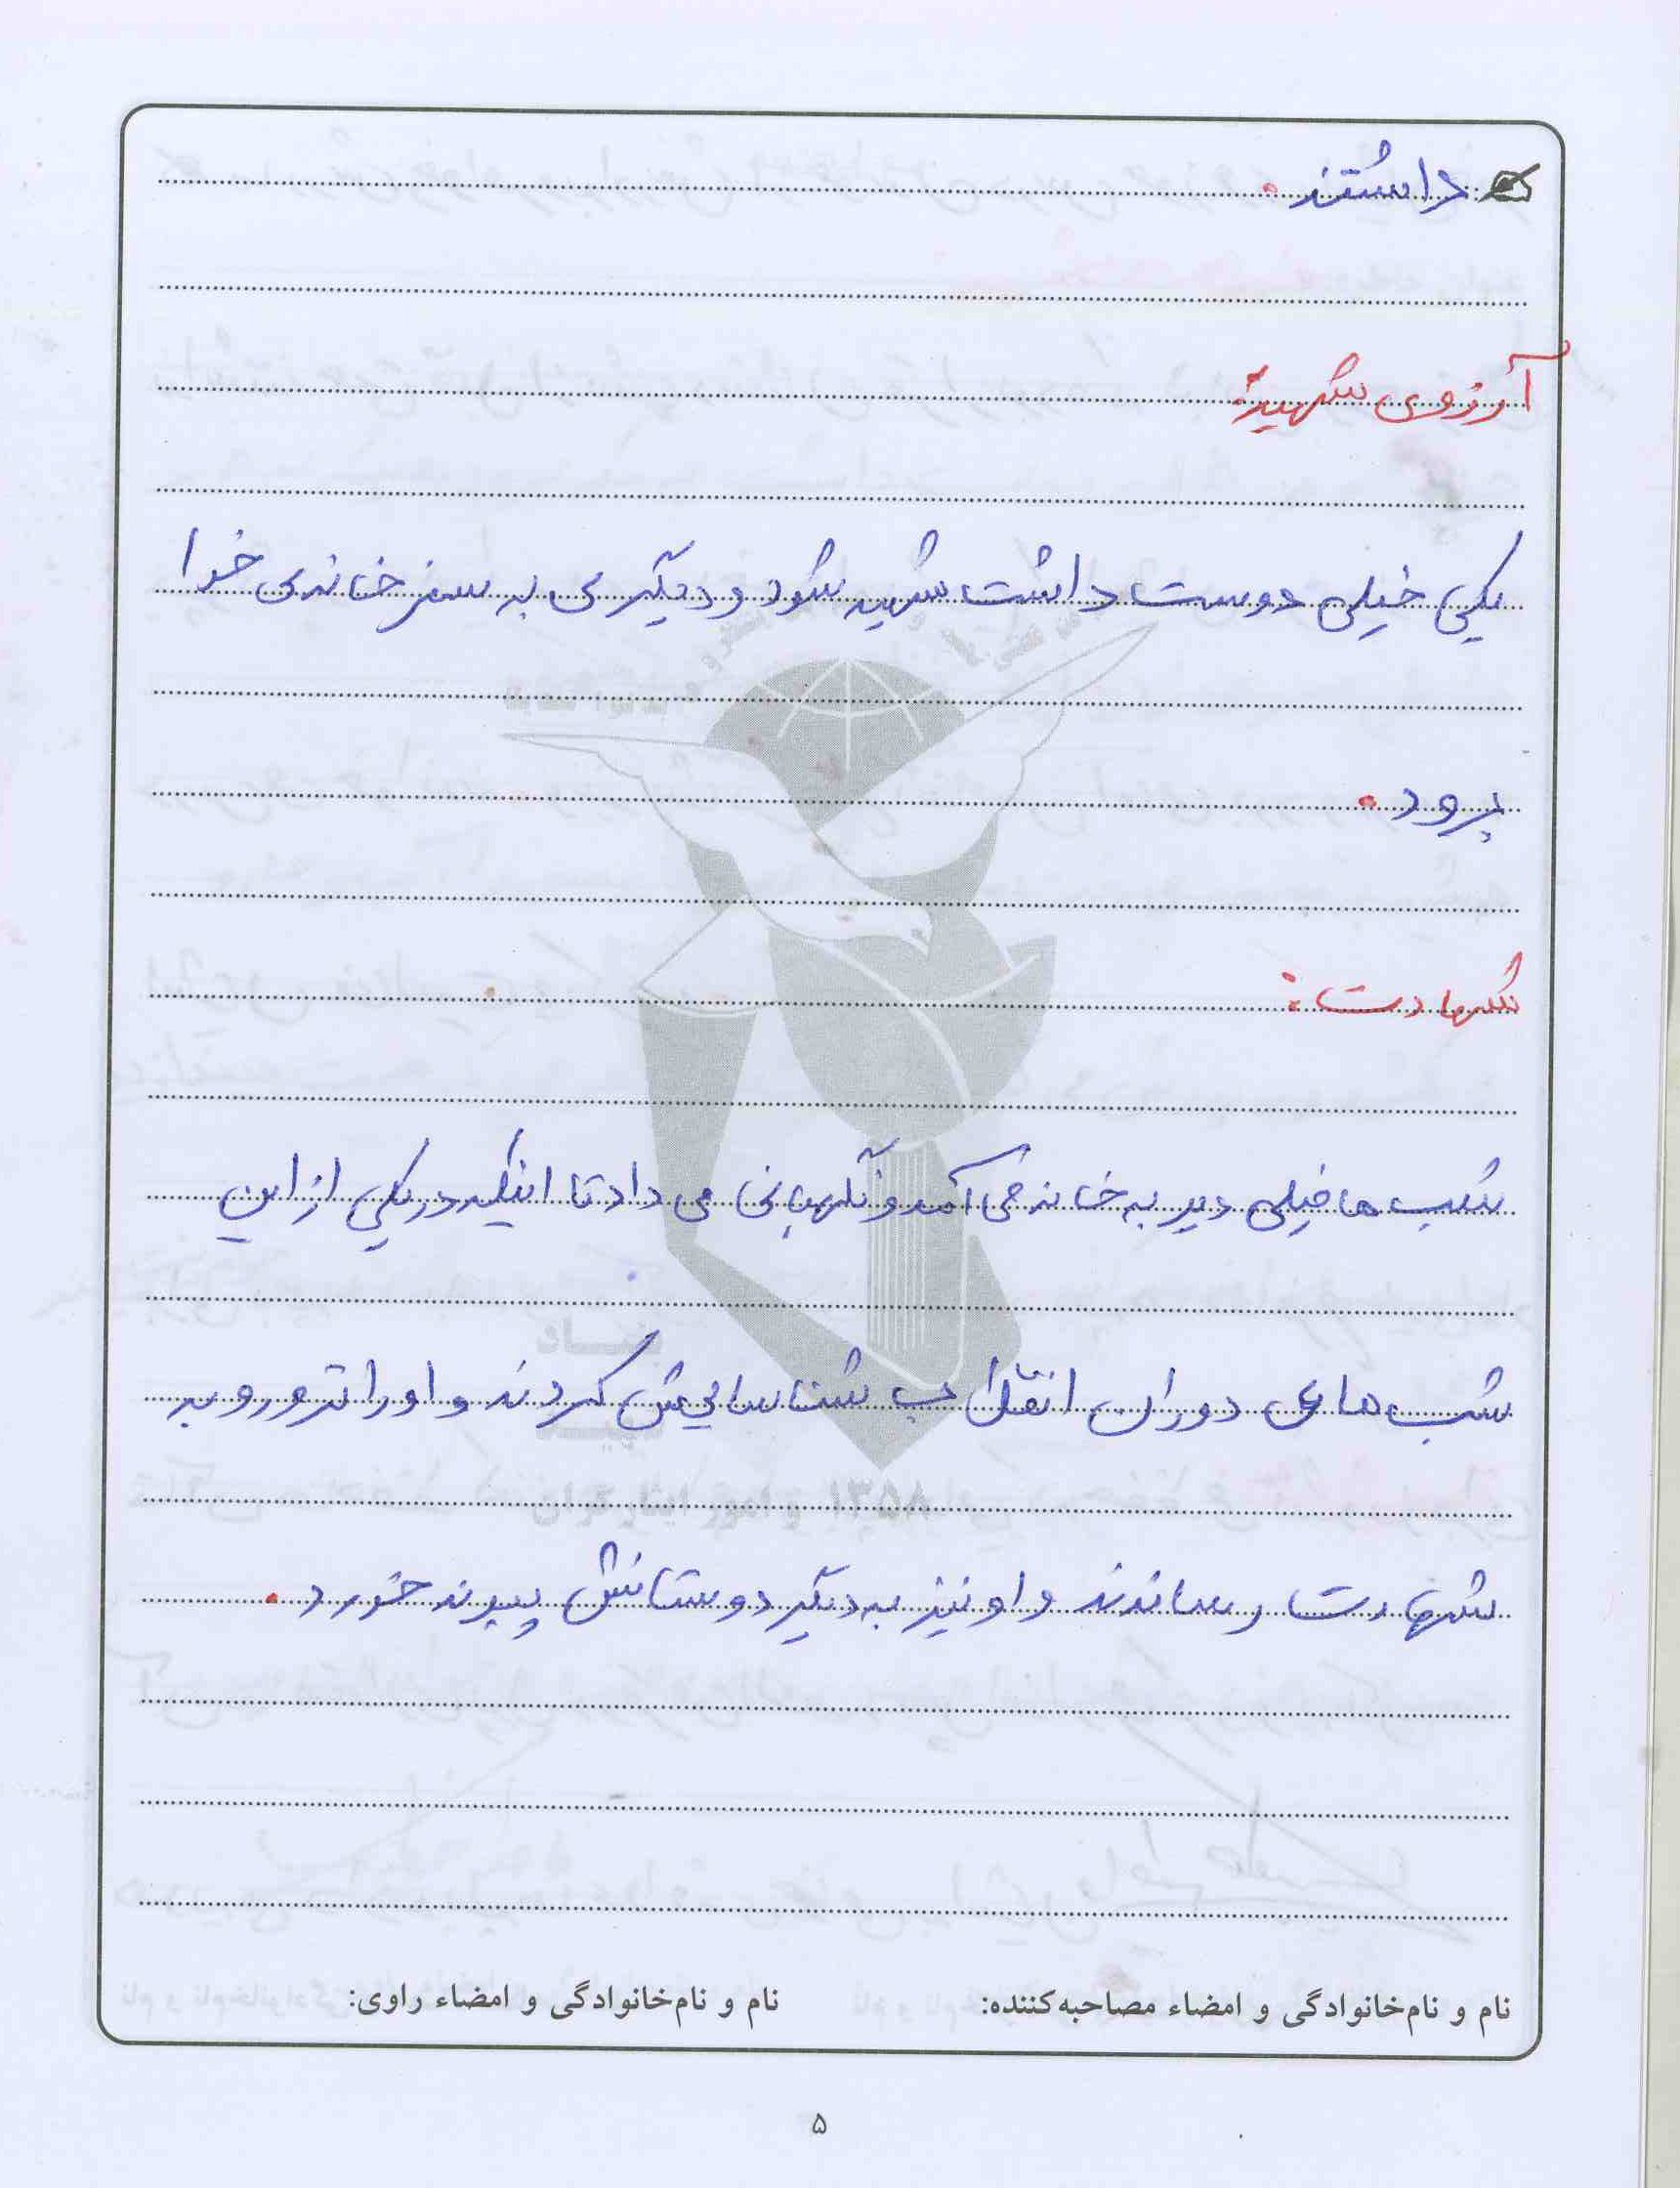 داشتند.
آرزوی شهید:
یکی خیلی دوست داشت شهید شود و دیگری به سفر خانه‌ی خدا
برود.
شهادت:
شب ها خیلی دیر به خانه می آمد و نگهبانی می داد تا اینکه در یکی از این
شب های دوران انقلاب شناسایی‌ش کردند و او را ترور و به
شهادت رساندند و او نیز به دیگر دوستانش پیوند خورد.
بنیاد
شهید
و امور ایثارگران ۱۳۵۸
نام و نام‌خانوادگی و امضاء مصاحبه‌کننده: نام و نام‌خانوادگی و امضاء راوی:
۵